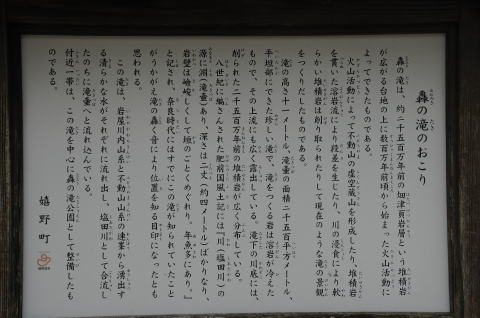 轟の滝のおこり
轟の滝は、約二千五百万年前の畑津頁岩層という堆積岩
が広がる台地の上に数百万年前頃から始まった火山活動に
よってできたものである。
火山活動によって不動山の虚空蔵山を形成したり、堆積岩
を貫いた溶岩流により段差を生じたり、川の浸食により軟
らかい堆積岩は削り取られたりして現在のような滝の景観
をつくりだしたものである。
滝の高さ十一メートル、滝壷の面積二千五百平方メートル、
平坦部にできた珍しい滝で、滝をつくる岩は溶岩が冷えた
もので、その上流にも広く露出している。滝下の川底には、
削られた二千五百万年前の堆積岩が広く分布している。
八世紀に編さんされた肥前国風土記には『川（塩田川）の
源に淵（滝壷）あり、深さは二丈（約四メートル）ばかりなり、
岩壁は嶮峻しくして垣のごとくめぐれり。年魚多にあり。』
と記され、奈良時代にはすでにこの滝が知られていたこと
がうかがえ滝の轟く音により位置を知る目印になったとも
思われる。
この滝は、岩屋川内山系と不動山山系の連峯から湧出す
る清らかな水がそれぞれに流れ出し、塩田川として合流し
たのちに滝壷へと流れ込んでいる。
付近一帯は、この滝を中心に轟の滝公園として整備したも
のである。
嬉野町